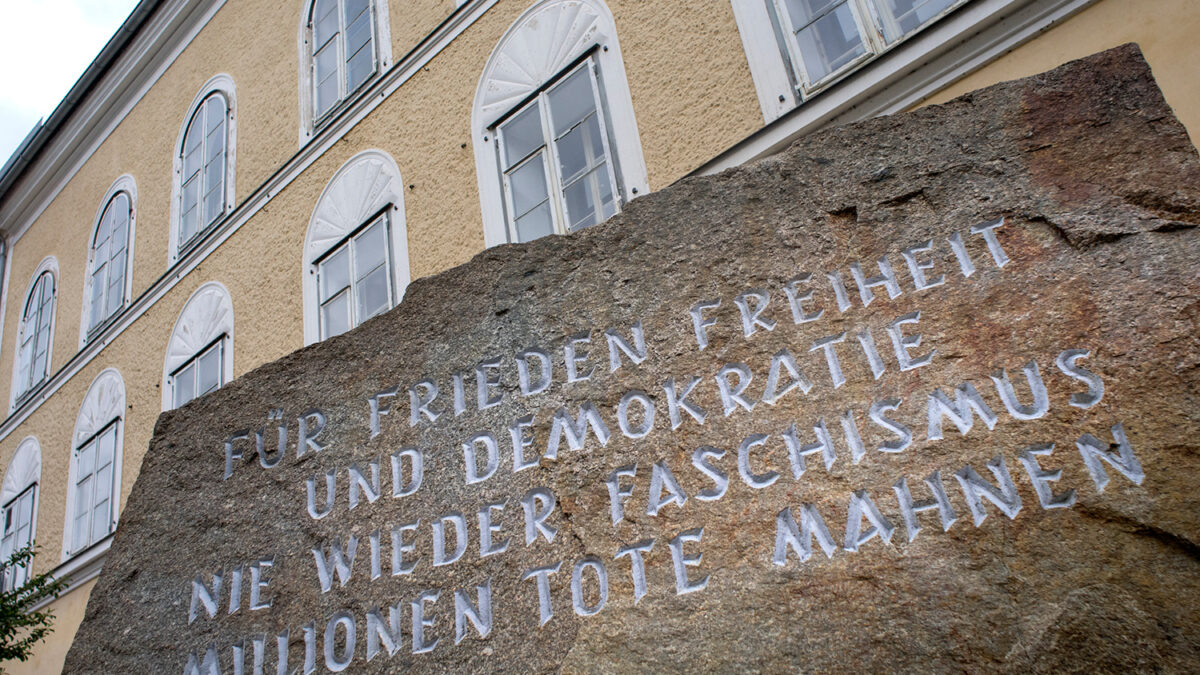 FÜR FRIEDEN FREIHEIT
UND DEMOKRATIE
NIE WIEDER FASCHISMUS
MILLIONEN TOTE MAHNEN